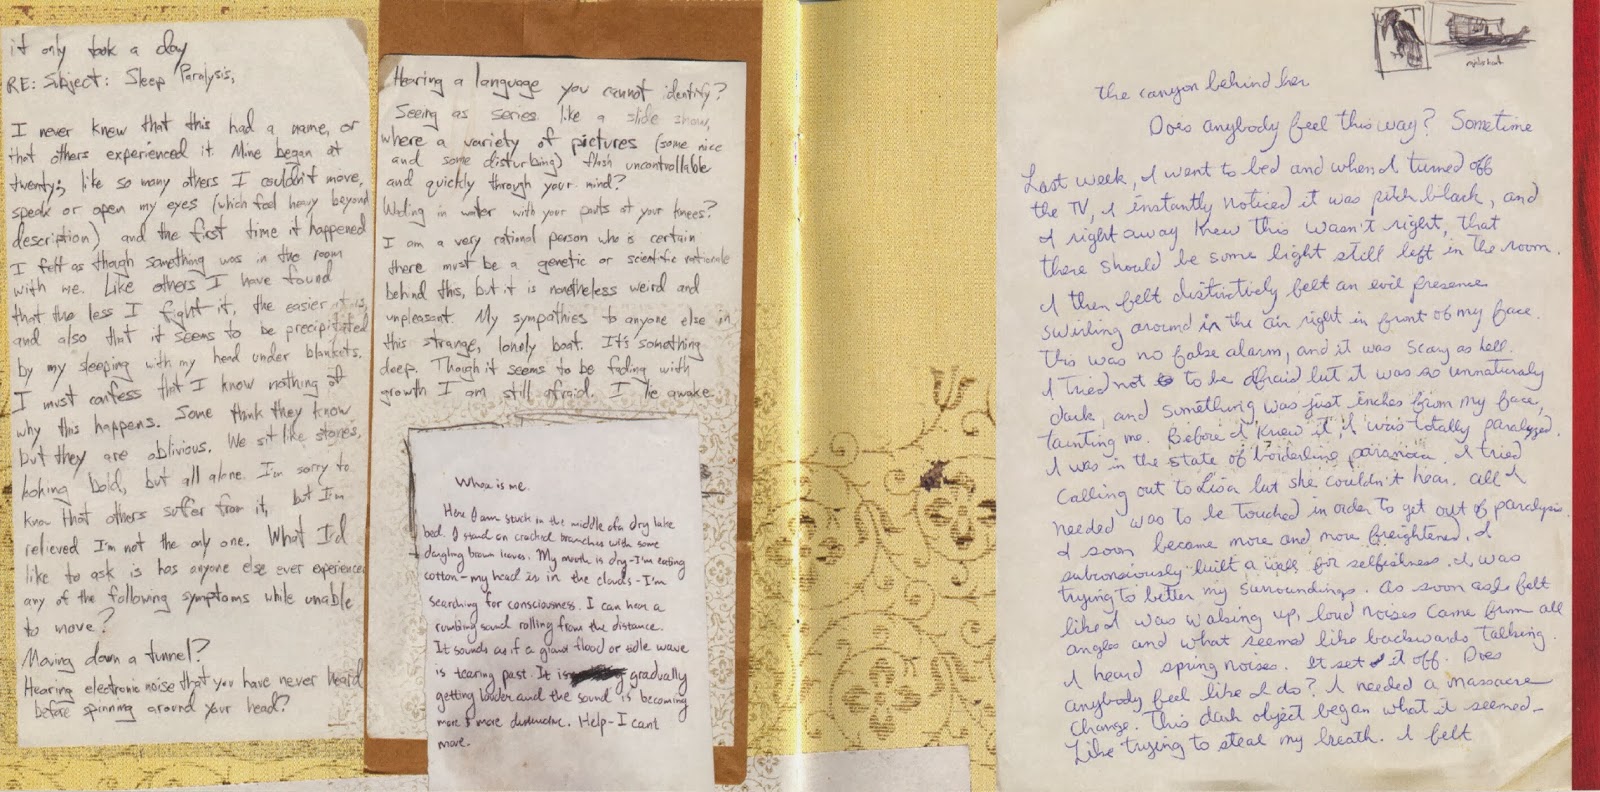 it only took a day
RE: Subject: Sleep Paralysis,
I never knew that this had a name, or
that others experienced it. Mine began at
twenty; like so many others I couldn't move,
speak or open my eyes (which feel heavy beyond
description) and the first time it happened
I felt as though something was in the room
with me. Like others I have found
that the less I fight it, the easier it is,
and also that it seems to be precipitated
by my sleeping with my head under blankets.
I must confess that I know nothing of
why this happens. Some think they know
but they are oblivious. We sit like stones,
looking bold, but all alone. I'm sorry to
know that others suffer from it, but I'm
relieved I'm not the only one. What I'd
like to ask is has anyone else ever experienced
any of the following symptoms while unable
to move?
Moving down a tunnel?
Hearing electronic noise that you have never heard
before spinning around your head?
Hearing a language you cannot identify?
Seeing as series like a slide show,
where a variety of pictures (some nice
and some disturbing) flash uncontrollable
and quickly through your mind?
Wading in water with your pants at your knees?
I am a very rational person who is certain
there must be a genetic or scientific rationale
behind this, but it is nonetheless weird and
unpleasant. My sympathies to anyone else in
this strange, lonely boat. It's something
deep. Though it seems to be fading with
growth I am still afraid. I lie awake.
Whoa is me.
Here I am stuck in the middle of a dry lake
bed. I stand on cracked branches with some
dangling brown leaves. My mouth is dry-I'm eating
cotton-my head is in the clouds-I'm
searching for consciousness. I can hear a
rumbling sound rolling from the distance.
It sounds as if a giant flood or tidle wave
is tearing past. It is gradually
getting louder and the sound is becoming
more & more distinctive. Help-I can't
move.
the canyon behind her
Does anybody feel this way? Sometime
Last week, I went to bed and when I turned off
the TV, I instantly noticed it was pitch black, and
I right away knew this wasn't right, that
there should be some light still left in the room.
I then felt distinctively felt an evil presence
swirling around in the air right in front of my face.
This was no false alarm, and it was scary as hell.
I tried not to be afraid but it was so unnaturaly
dark, and something was just inches from my face,
taunting me. Before I knew it, I was totally paralyzed.
I was in the state of borderline paranoia. I tried
calling out to Lisa but she couldn't hear. all I
needed was to be touched in order to get out of paralysis.
I soon became more and more freightened. I
subconsiously built a well for selfishness. I was
trying to better my surroundings. As soon as I felt
like I was waking up, loud noises came from all
angles and what seemed like backwards talking.
I heard spring noises. It set it off. Does
anybody feel like I do? I needed a massacre
change. This dark object began what it seemed-
Like trying to steal my breath. I felt